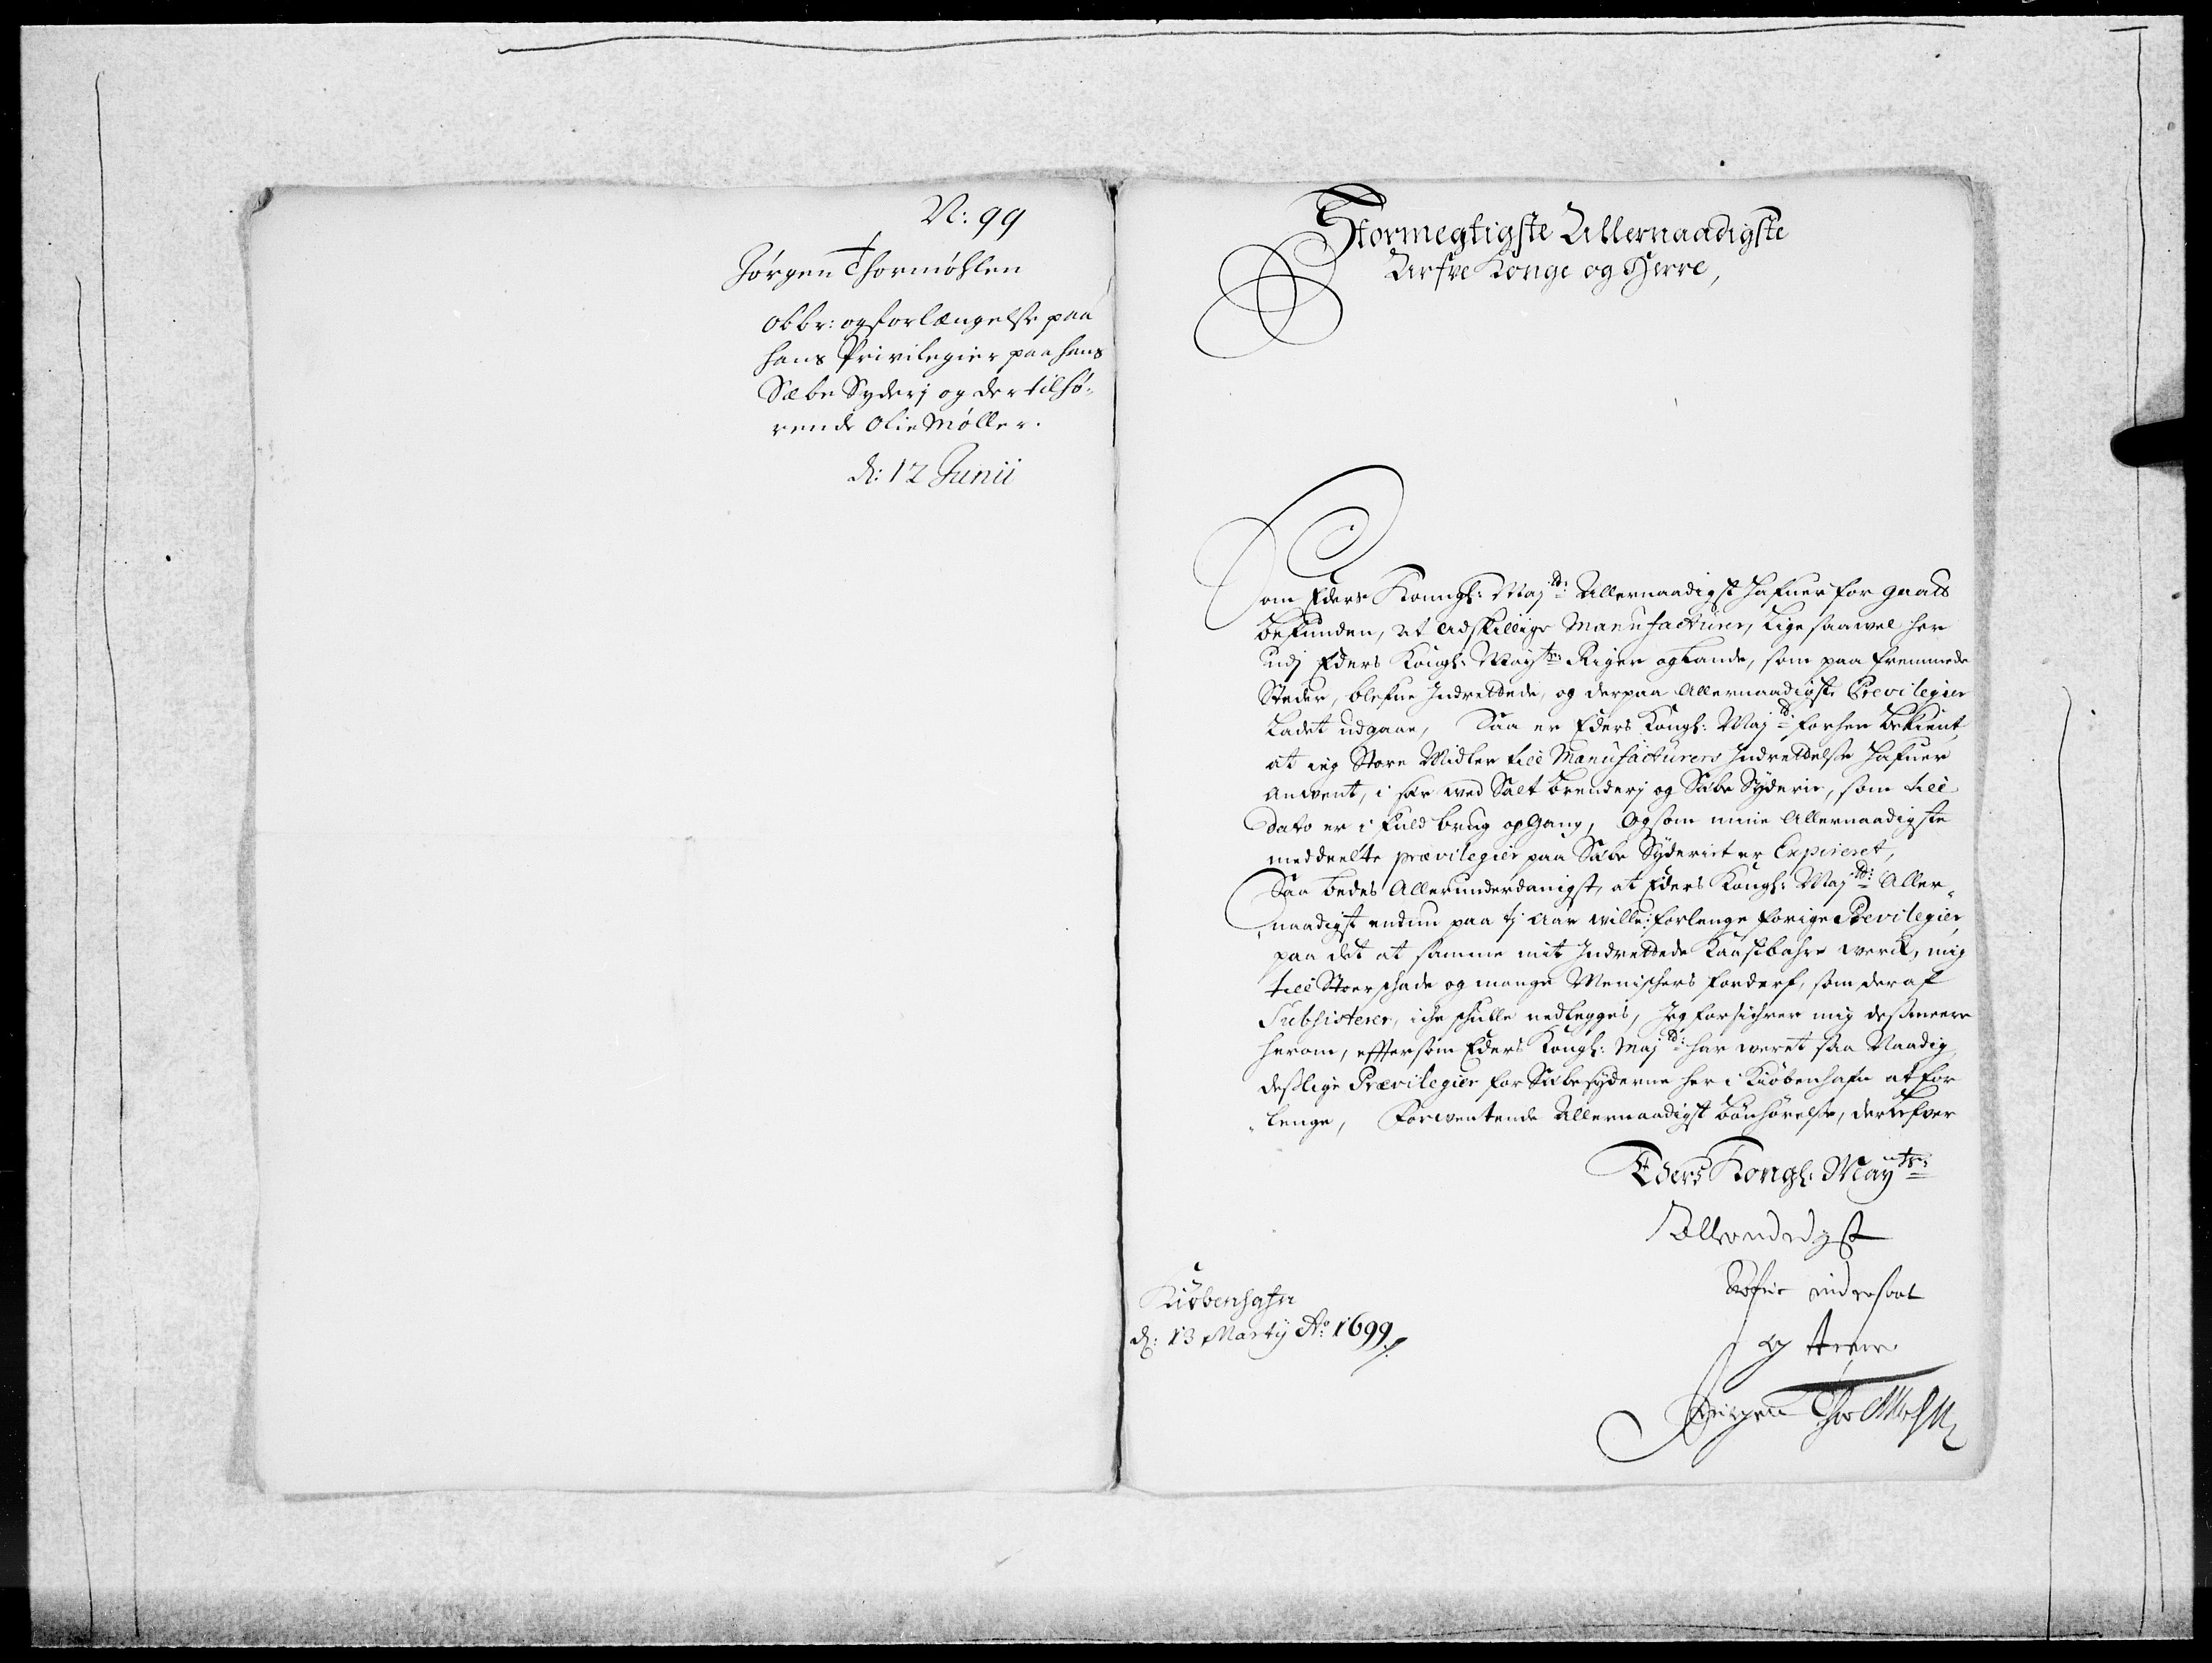 N: 99
Jørgen Thormøhlen
obbr: og forlængelse paa
hans Privilegier paa hans
Sæbe Syderj og der tilhø¬
rende Olie Møller.
d: 12 Junii
Stormegtigste Allernaadigste
Arfve Konge og Herre,
Som Eders Konngl: Majts: Allernaadigst hafuer for gaat
befunden, at adskillige Manufacturer, lige saavel her
udj Eders Kongl: Mayts: Riger og Lande, som paa fremmede
Steder, blefue Indrettede, og derpaa Allernaadigste Previlegier
Ladet udgaae, Saa er Eders Kongl: Majt: forhen bekient
at ieg Store Midler till Manufacturers Indrettelse hafuer
anvent, i sær ved Salt brenderj og Sæbe Syderie, som till
dato er i fuld brug og Gang, Og som mine Allernaadigste
meddeelte prævilegier paa Sæbe Syderiet er Expireret,
Saa bedes Allerunderdanigst, at Eders Kongl: Majtt: Aller¬
naadigst endnu paa tj Aar wille forlenge forige Previlegier,
paa det at samme mit Indrettede Kaastbahre werck, mig
till Stoer schade og mange Menischers forderf, som deraf
Subsisterer, iche schulle nedlegges, Jeg forsichrer mig dessmeere
herom, effter som Eders Kongl: Majtt: har weret saa Naadig
desslige Prævilegier for Sæbesyderne her i Kiøbenhafn at for
lenge, Forwentende Allernaadigst bønhørelse, der lefver
Eders Kongl: Mayts:
Kiøbenhafn
d: 13 Martij Ao: 1699
og tiener
Jørgen Thor Møhlen